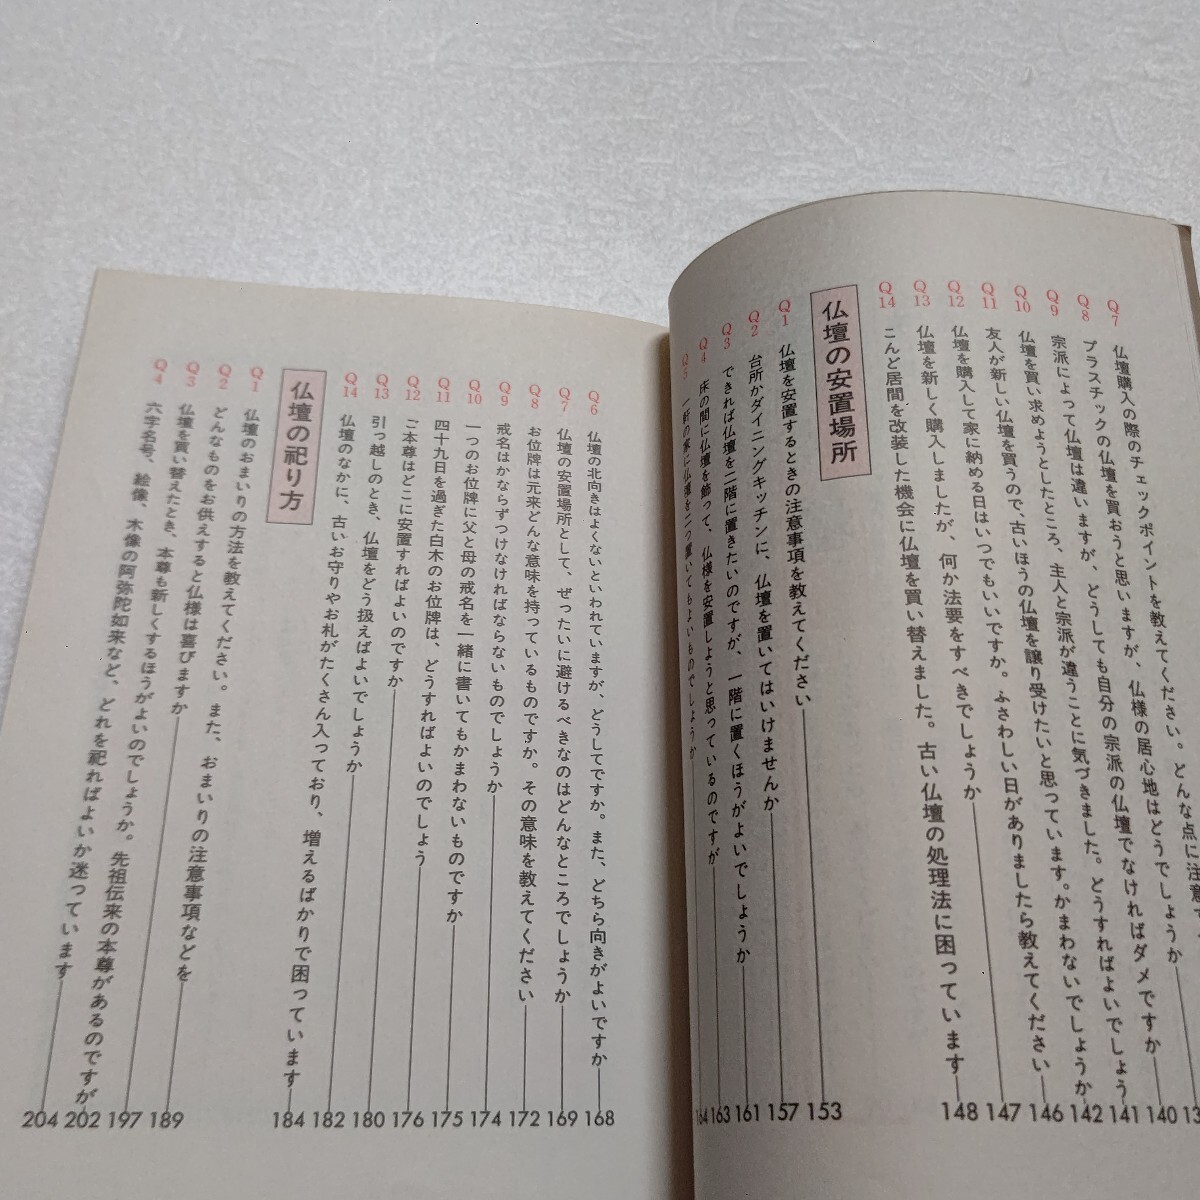 Q7 仏壇購入の際のチェックポイントを教えてください。どんな点に注意
Q8 プラスチックの仏壇を買おうと思いますが、仏様の居心地はどうでしょうか 140
Q9 宗派によって仏壇は違いますが、どうしても自分の宗派の仏壇でなければダメですか 141
Q10 仏壇を買い求めようとしたところ、主人と宗派が違うことに気づきました。どうすればよいでしょう 142
Q11 友人が新しい仏壇を買うので、古いほうの仏壇を譲り受けたいと思っています。かまわないでしょうか 146
Q12 仏壇を購入して家に納める日はいつでもいいですか。ふさわしい日がありましたら教えてください 147
Q13 仏壇を新しく購入しましたが、何か法要をすべきでしょうか
Q14 こんど居間を改装した機会に仏壇を買い替えました。古い仏壇の処理法に困っています 148
仏壇の安置場所
Q1 仏壇を安置するときの注意事項を教えてください 153
Q2 台所かダイニングキッチンに、仏壇を置いてはいけませんか 157
Q3 できれば仏壇を二階に置きたいのですが、一階に置くほうがよいでしょうか 161
Q4 床の間に仏壇を飾って、仏様を安置しようと思っているのですが 163
Q5 一軒の家に仏壇を二つ置いてもよいものでしょうか 164
Q6 仏壇の北向きはよくないといわれていますが、どうしてですか。また、どちら向きがよいですか 168
Q7 仏壇の安置場所として、ぜったいに避けるべきなのはどんなところでしょうか 169
Q8 お位牌は元来どんな意味を持っているものですか。その意味を教えてください 172
Q9 戒名はかならずつけなければならないものでしょうか 174
Q10 一つのお位牌に父と母の戒名を一緒に書いてもかまわないものですか 175
Q11 四十九日を過ぎた白木のお位牌は、どうすればよいのでしょう 176
Q12 ご本尊はどこに安置すればよいのですか 180
Q13 引っ越しのとき、仏壇をどう扱えばよいでしょうか 182
Q14 仏壇のなかに、古いお守りやお札がたくさん入っており、増えるばかりで困っています 184
仏壇の祀り方
Q1 仏壇のおまいりの方法を教えてください。また、おまいりの注意事項などを 189
Q2 どんなものをお供えすると仏様は喜びますか 197
Q3 仏壇を買い替えたとき、本尊も新しくするほうがよいのでしょうか。先祖伝来の本尊があるのですが 202
Q4 六字名号、絵像、木像の阿弥陀如来など、どれを祀ればよいか迷っています 204